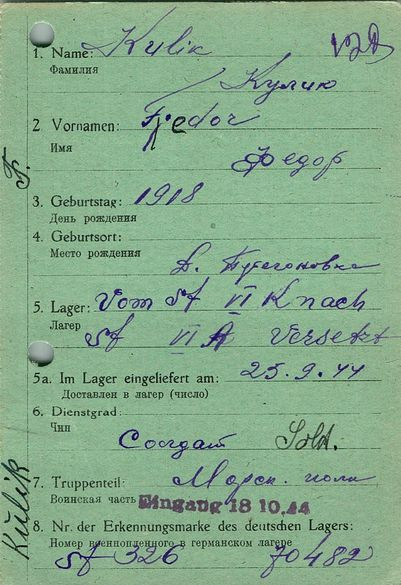 1. Name: Kulik
Фамилия
Кулик
2. Vornamen: Fjedor
Имя
Федор
F.
3. Geburtstag: 1918
День рождения
4. Geburtsort:
Место рождения
д.
5. Lager: Vom Sf VI K nach
Лагер
Sf VI A Versetzt
5a. Im Lager eingeliefert am: 25.9.44
Доставлен в лагер (число)
6. Dienstgrad:
Чин
Солдат Sold.
7. Truppenteil: Морск. полк
Воинская часть Eingang 18 10.44
8. Nr. der Erkennungsmarke des deutschen Lagers:
Номер военнопленного в германском лагере
Sf 326 70482
Kulik